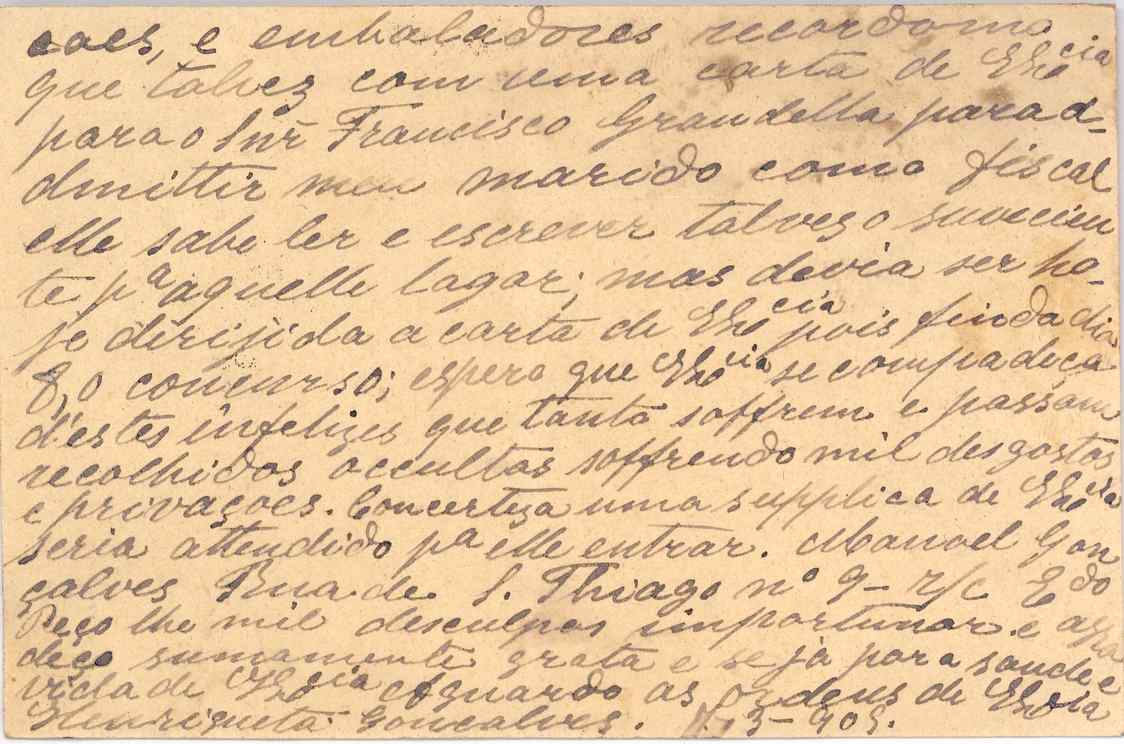 coes, e embaladores recordome
que talvez com uma carta de Exᶜⁱᵃ
para o Snr Francisco Grandella para ad-
dmittir meu marido como fiscal
elle sabe ler e escrever talvez o suvecien
te pª aquelle lagar; mas devia ser ho-
je dirijida a carta de Exᶜⁱᵃ pois finda dia
8, o concurso; espero que Exᶜⁱᵃ se compadeça
d'estes infelizes que tanto soffrem e passam
recolhidos occultos soffrendo mil desgostos
e privaçoes. Concerteza uma supplica de Exᶜⁱᵃ
seria attendido pª elle entrar. Manoel Gon
çalves Rua de S. Thiago nº 9 - r/c E do
Peço lhe mil desculpas importunar e agra
deço sumamente grata e seja para saude e
vida de Exᶜⁱᵃ Aguardo as ordens de Exᶜⁱᵃ
Henriqueta Goncalves. 3-905.